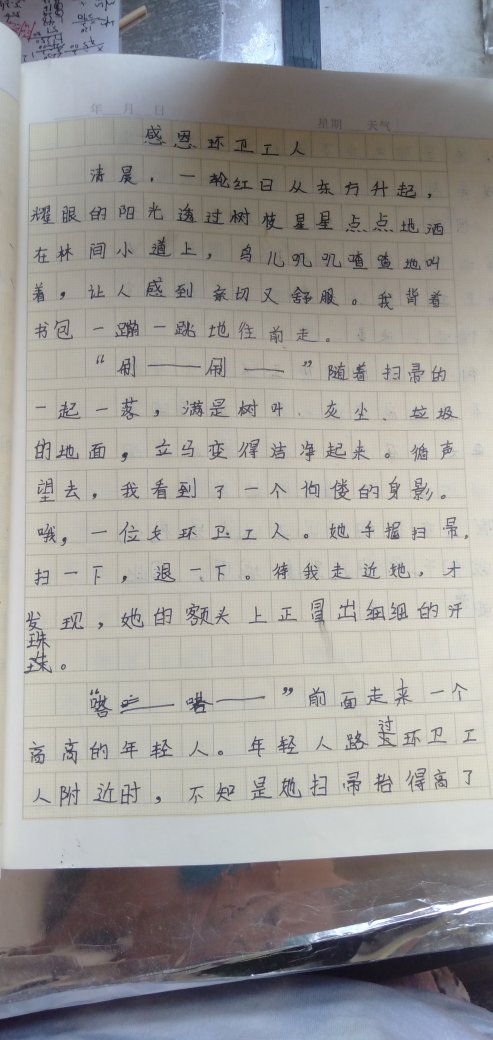 年 月 日
星期 天气
感恩环卫工人
清晨，一轮红日从东方升起，
耀眼的阳光透过树枝星星点点地洒
在林间小道上，鸟儿叽叽喳喳地叫
着，让人感到亲切又舒服。我背着
书包一蹦一跳地往前走。
“刷——刷——”随着扫帚的
一起一落，满是树叶、灰尘、垃圾
的地面，立马变得洁净起来。循声
望去，我看到了一个佝偻的身影。
哦，一位女环卫工人。她手握扫帚，
扫一下，退一下。待我走近她，才
发现，她的额头上正冒出细细的汗
珠。
“嗒——嗒——”前面走来一个
高高的年轻人。年轻人路过环卫工
人附近时，不知是她扫帚抬得高了